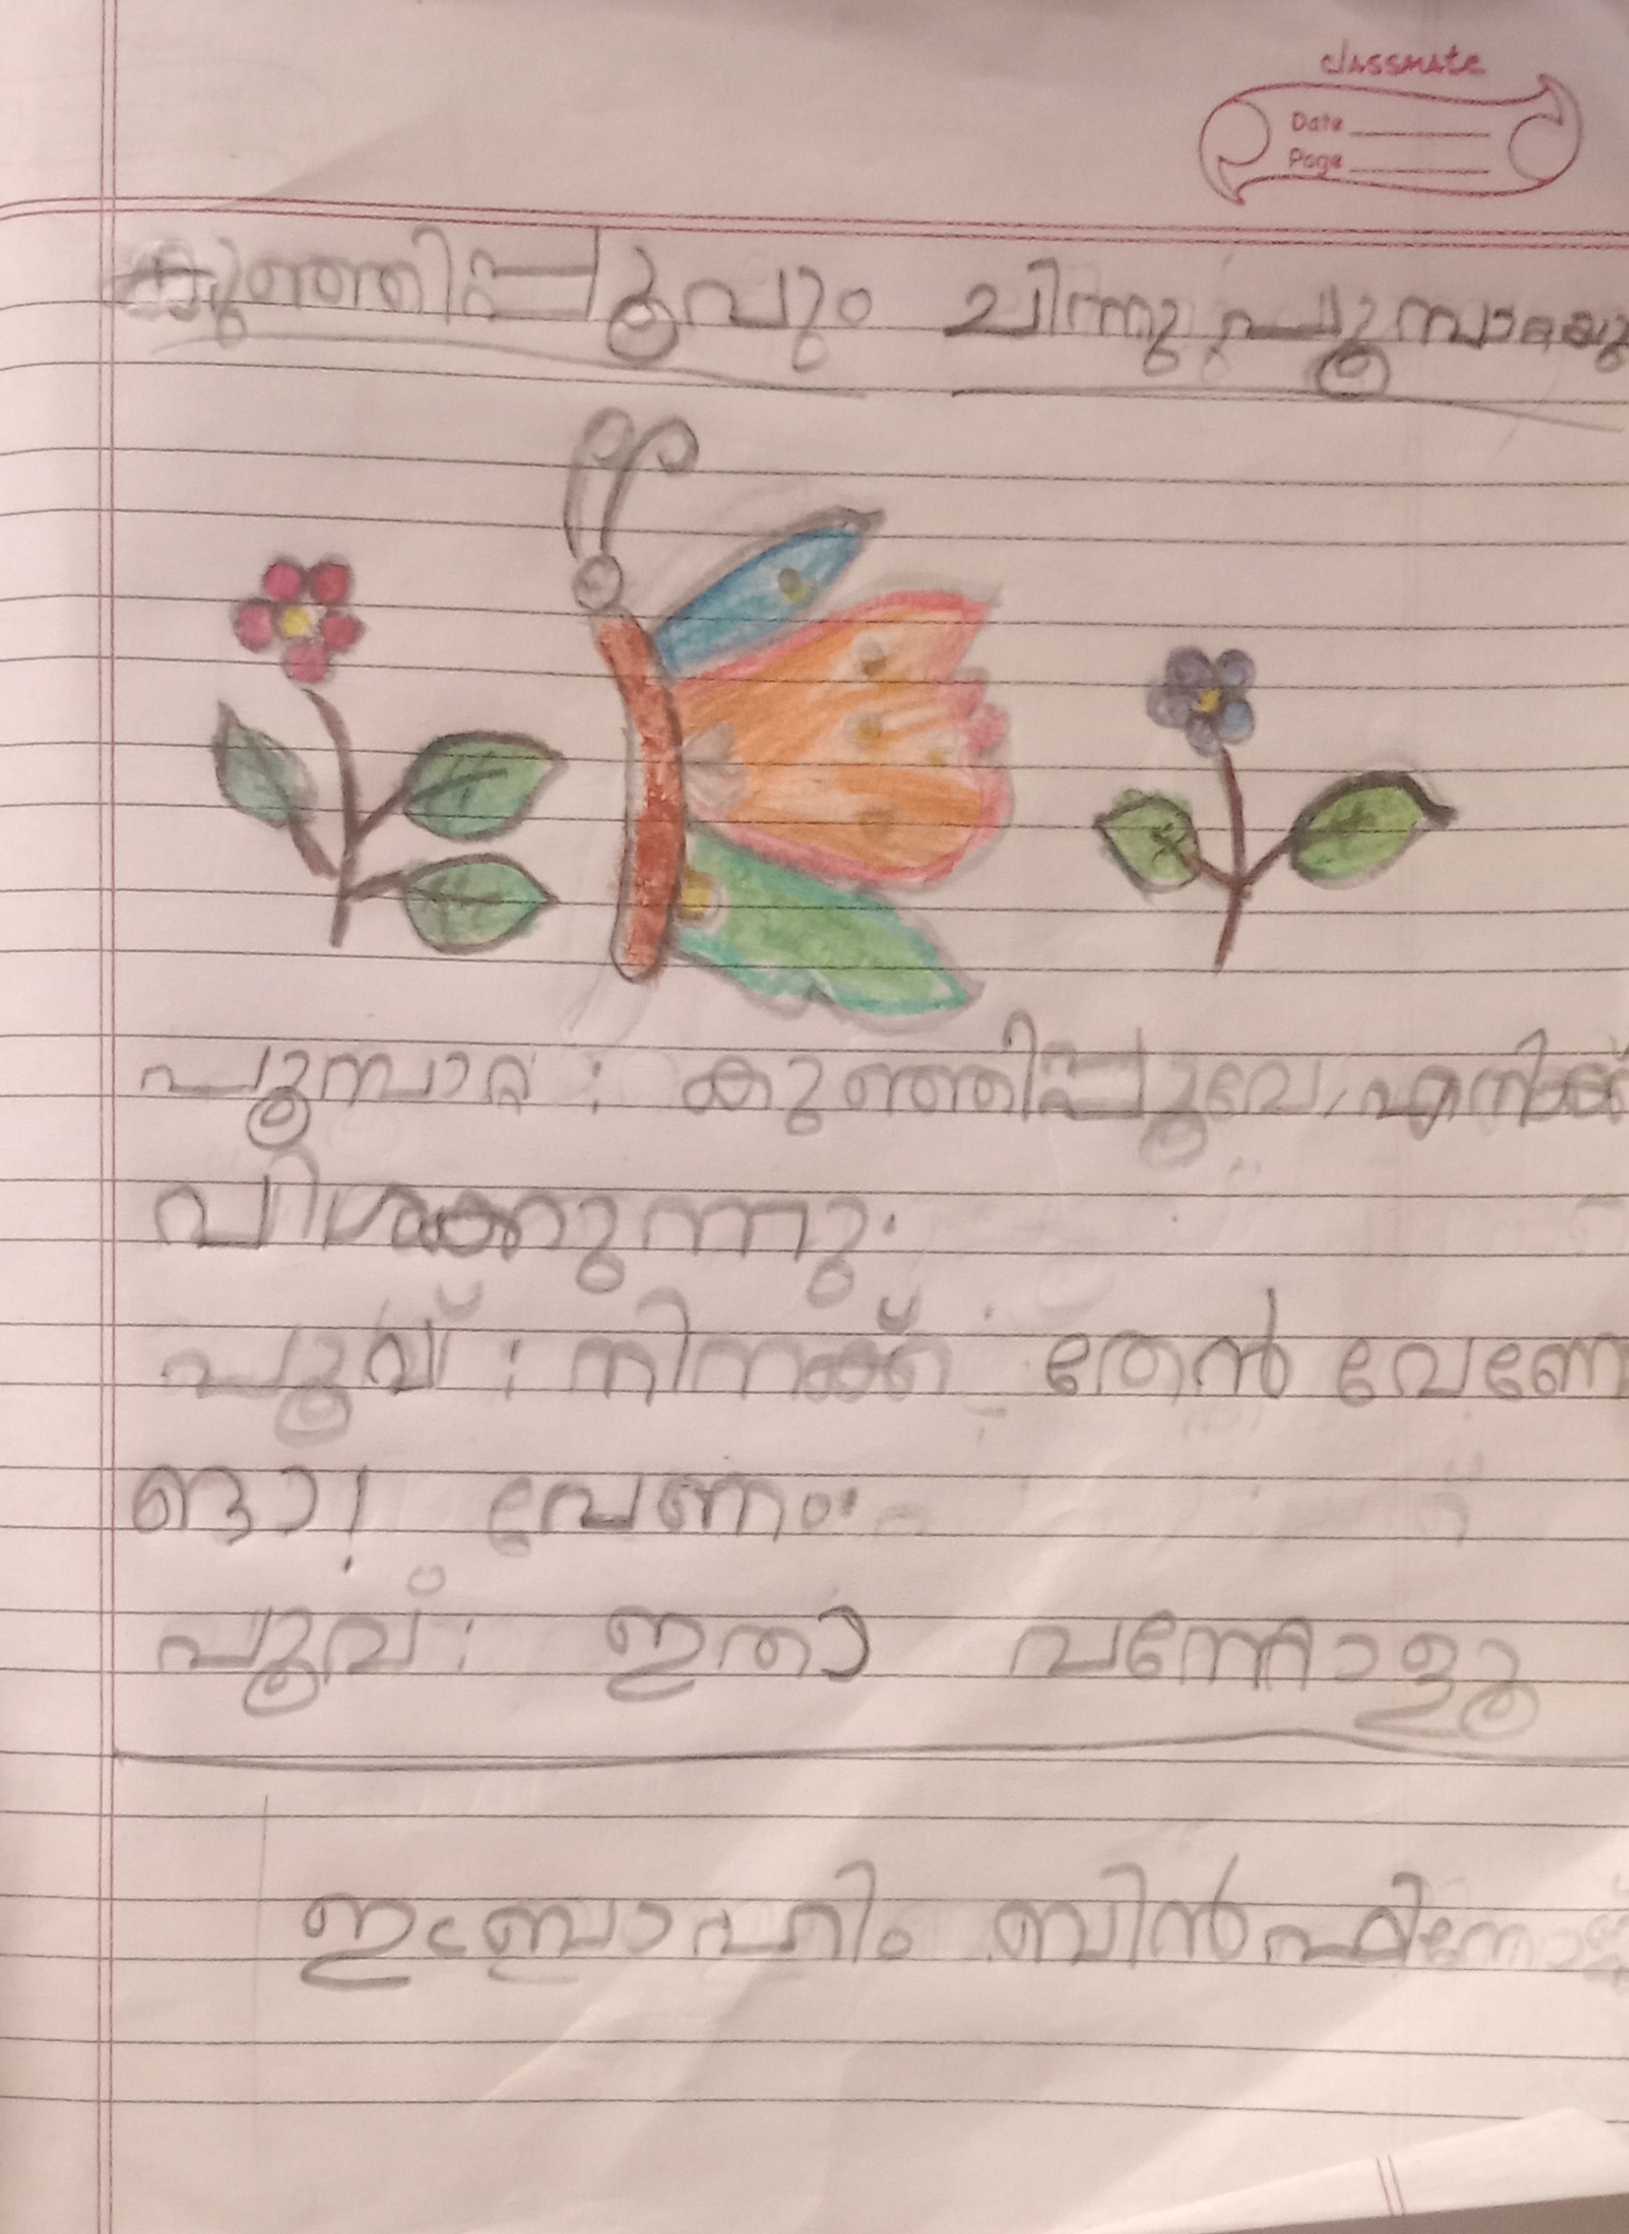 classmate
Date
Page
കുഞ്ഞിപ്പൂവും ചിന്നുപൂമ്പാറ്റയു
പൂമ്പാറ്റ : കുഞ്ഞിപ്പൂവേ, എനിക്ക്
വിശക്കുന്നു.
പൂവ് : നിനക്ക് തേൻ വേണോ
ഓ! വേണം.
പൂവ് : ഇതാ വന്നോളൂ
ഇബ്രാഹിം ബിൻ